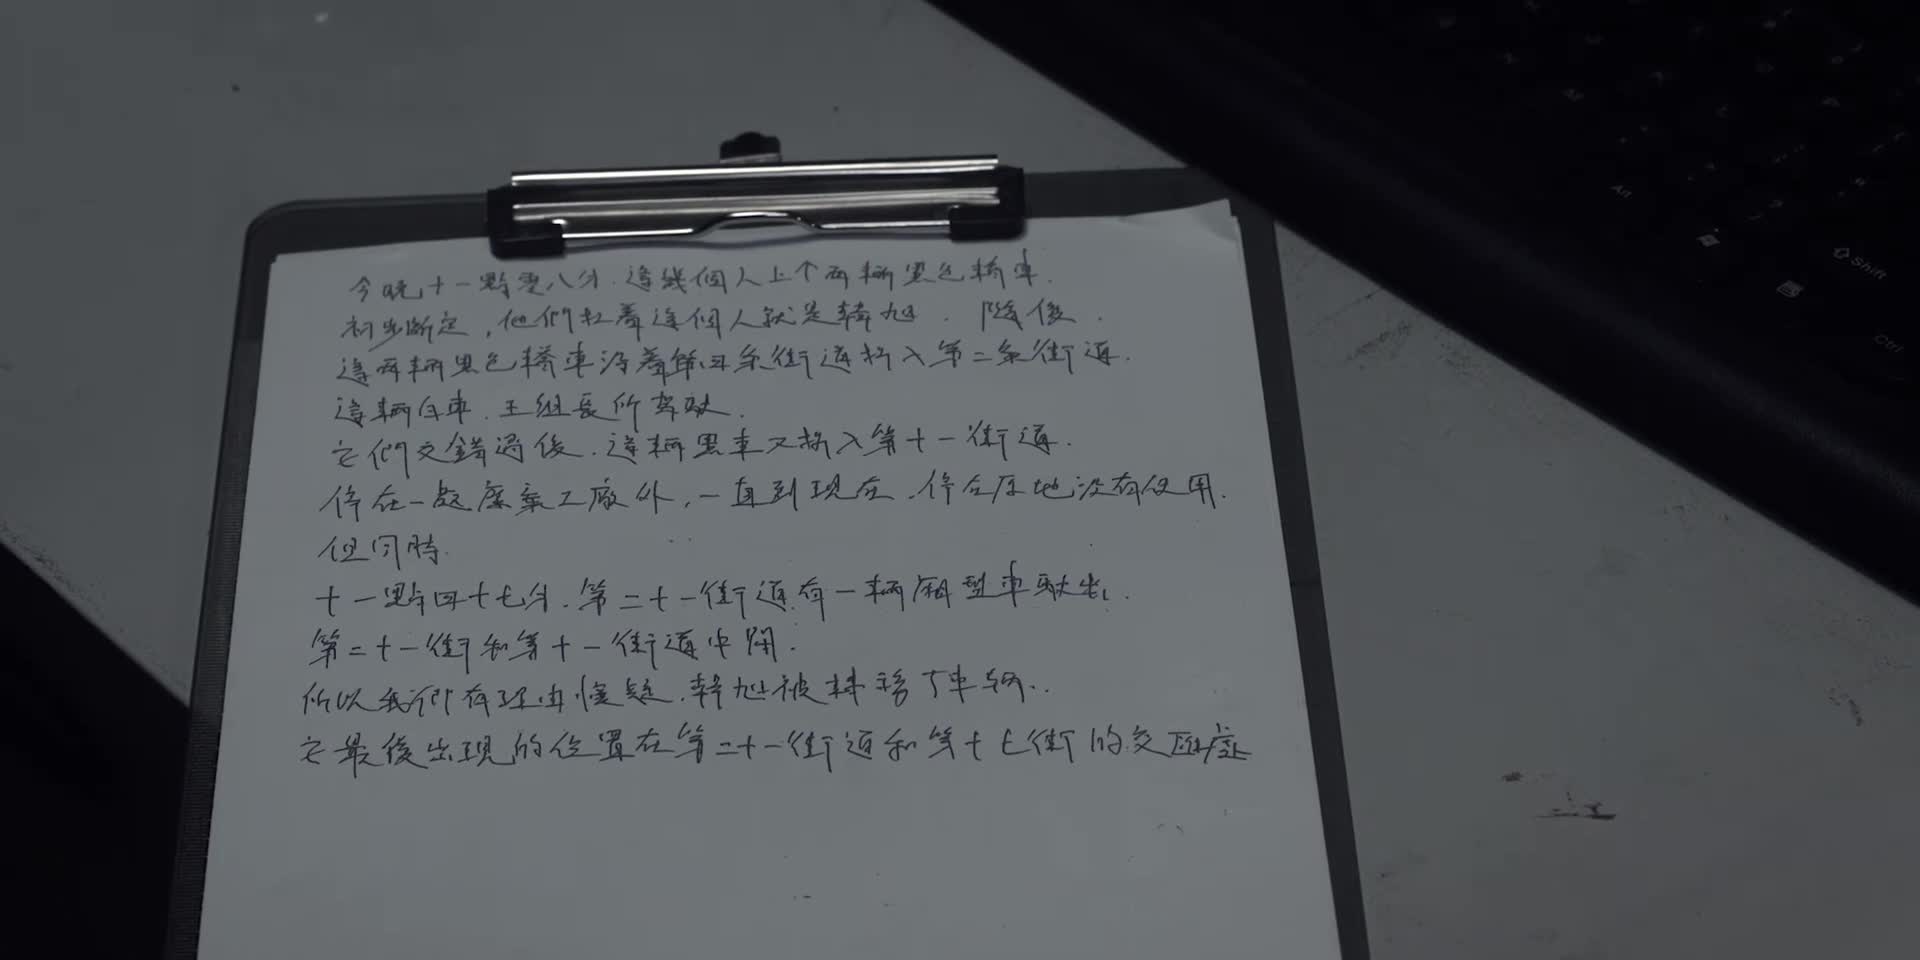 今晚十一點零八分.這幾個人上了兩輛黑色轎車.
初步斷定,他們扛着這個人就是韓旭.隨後.
這兩輛黑色轎車沿着第四条街道拐入第二条街道.
這輛白車.王組長所驾駛.
它們交錯過後.這輛黑車又拐入第十一街道.
停在一起廢棄工廠外,一直到現在.停在原地沒有使用.
但同時.
十一點四十七分.第二十一街道有一輛厢型車駛出.
第二十一街和第十一街道中間.
所以我們有理由懷疑.韓旭被轉移了車輛..
它最後出現的位置在第二十一街道和第十七街的交匯處
Alt
Shift
Ctrl